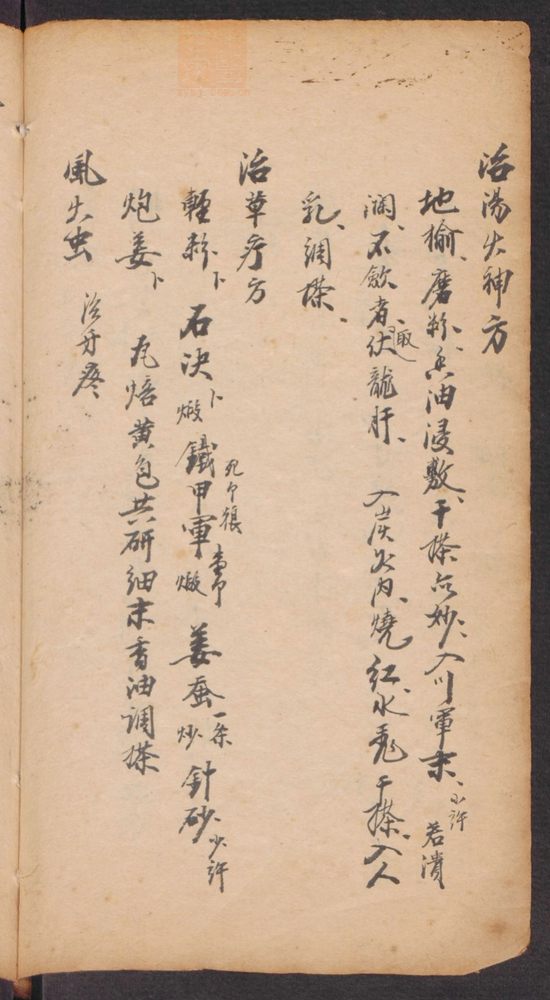 治湯火神方
地榆、磨粉、香油浸敷、干搽亦妙、入川軍末、少許 若潰
瀾、不飲者、取伏龍肝、入炭火內、燒紅、水飛干搽、入人
乳、調搽、
治草疔方
輕粉、卜 石決卜煅 鐵甲軍煅 姜蚕一条炒 針砂、少許
炮姜、卜 瓦焙黄色共研細末香油調搽
風火虫 治牙疼